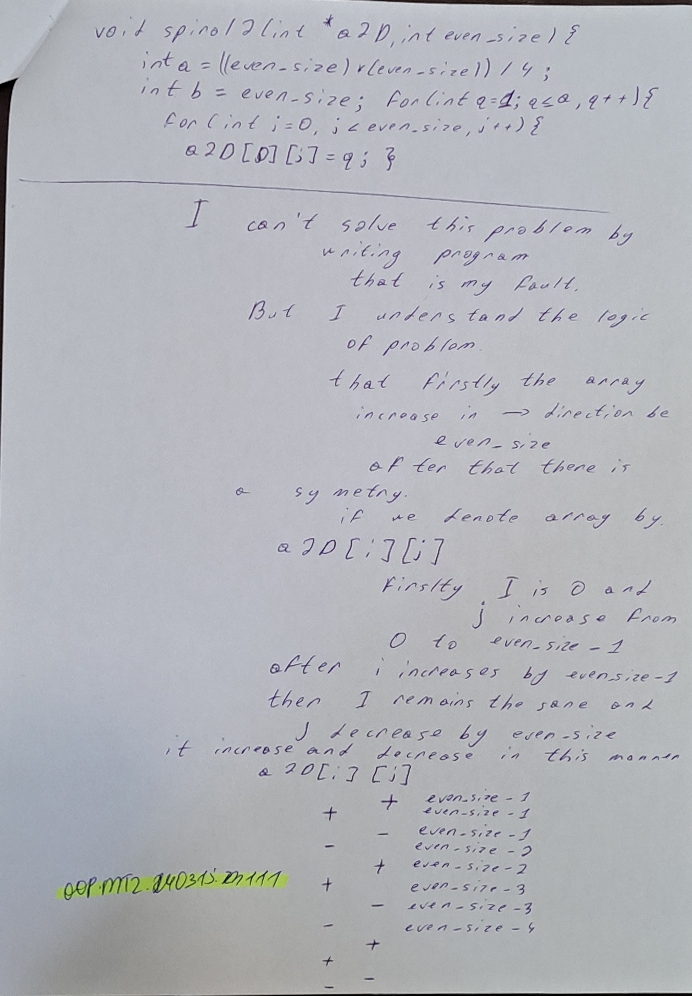 void spiral2(int *a2D, int even_size) {
int a = ((even_size)*(even_size))/4;
int b = even_size; for(int q=1; q≤a, q++){
for (int j=0, j<even_size, j++){
a2D[0][j]=q; }
I can't solve this problem by
writing program
that is my fault.
But I understand the logic
of problem.
that firstly the array
increase in → direction be
even_size
after that there is
a symetry.
if we denote array by.
a2D[i][j]
Firslty I is 0 and
j increase from
0 to even_size-1
after i increases by even_size-1
then I remains the same and
J decrease by even-size
it increase and decrease in this manner
a2D[i][j]
+ even_size-1
+ even_size-1
- even_size-1
- even_size-2
+ even_size-2
+ even_size-3
- even_size-3
- even_size-4
+
+
-
-